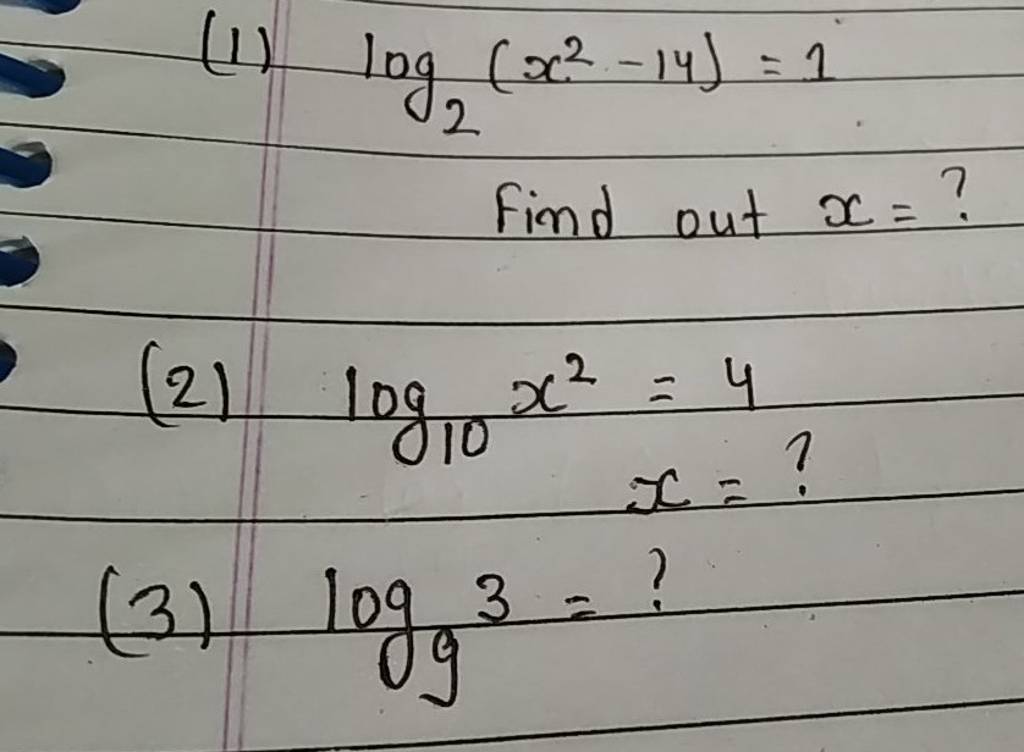 (1) log₂ (x² - 14) = 1
Find out x = ?
(2) log₁₀ x² = 4
x = ?
(3) log₉ 3 = ?